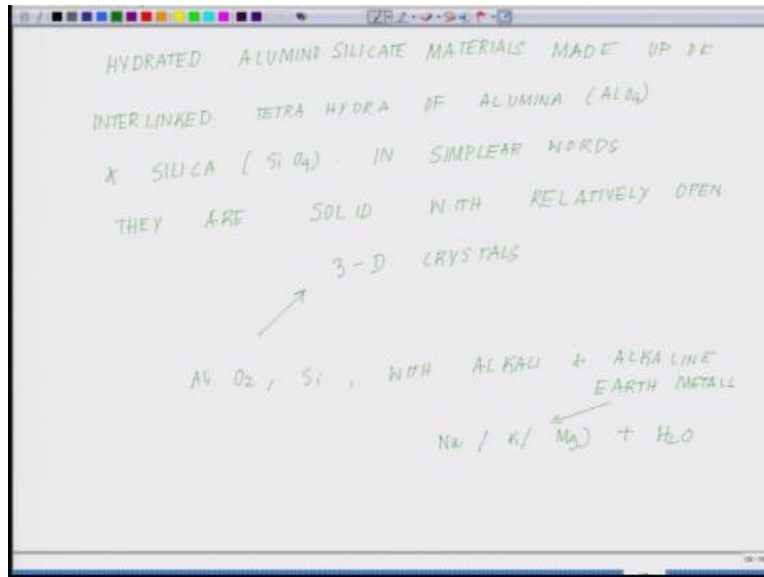 HYDRATED ALUMINO SILICATE MATERIALS MADE UP OF
INTERLINKED TETRA HYDRA OF ALUMINA (ALO4)
& SILICA (SiO4). IN SIMPLEAR WORDS
THEY ARE SOLID WITH RELATIVELY OPEN
3-D CRYSTALS
Al, O2, Si, WITH ALKALI + ALKALINE
EARTH METALS
Na / K/ Mg) + H2O